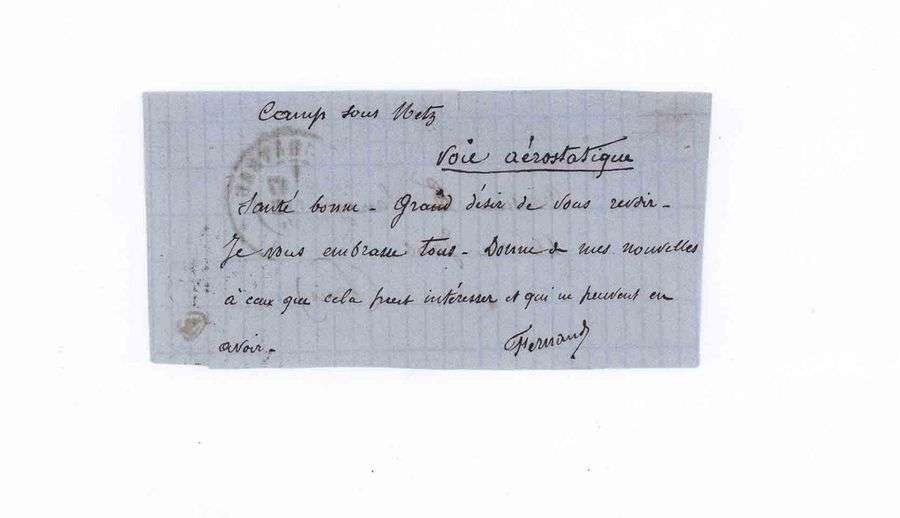 Camp sous Metz
Voie aérostatique
Santé bonne - Grand désir de vous revoir -
Je vous embrasse tous - Donne de mes nouvelles
à ceux que cela peut intéresser et qui ne peuvent en
avoir -
Fernand